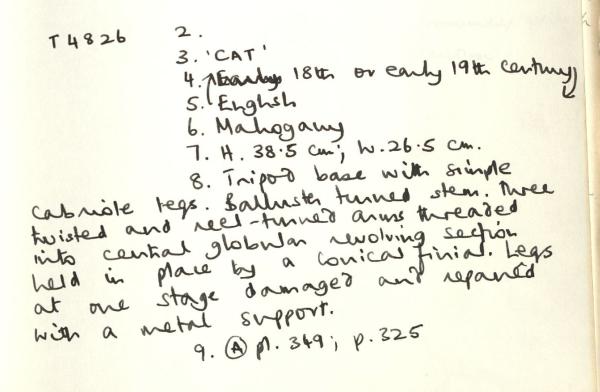 T4826 2.
3. 'CAT'
4. Early 18th or early 19th century
5. English
6. Mahogany
7. H. 38.5 cm; W. 26.5 cm.
8. Tripod base with simple
cabriole legs. Baluster turned stem. Three
twisted and reel-turned arms threaded
into central globular revolving section
held in place by a conical finial. Legs
at one stage damaged and repaired
with a metal support.
9. Ⓐ pl. 349; p. 325